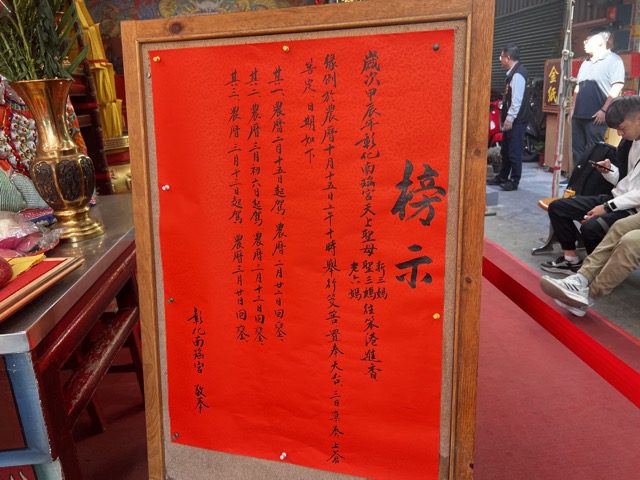 榜示
歲次甲辰年彰化南瑤宮天上聖母新三媽聖三媽老六媽往笨港進香
緣例於農曆十月十五日上午十時舉行筊筶置奉天台三日恭奏上蒼
筶定日期如下
其一、農曆二月十五日起駕 農曆二月廿二日回鑾
其二、農曆三月初六日起駕 農曆三月十三日回鑾
其三、農曆三月十二日起駕 農曆三月廿日回鑾
彰化南瑤宮 敬奉
金紙